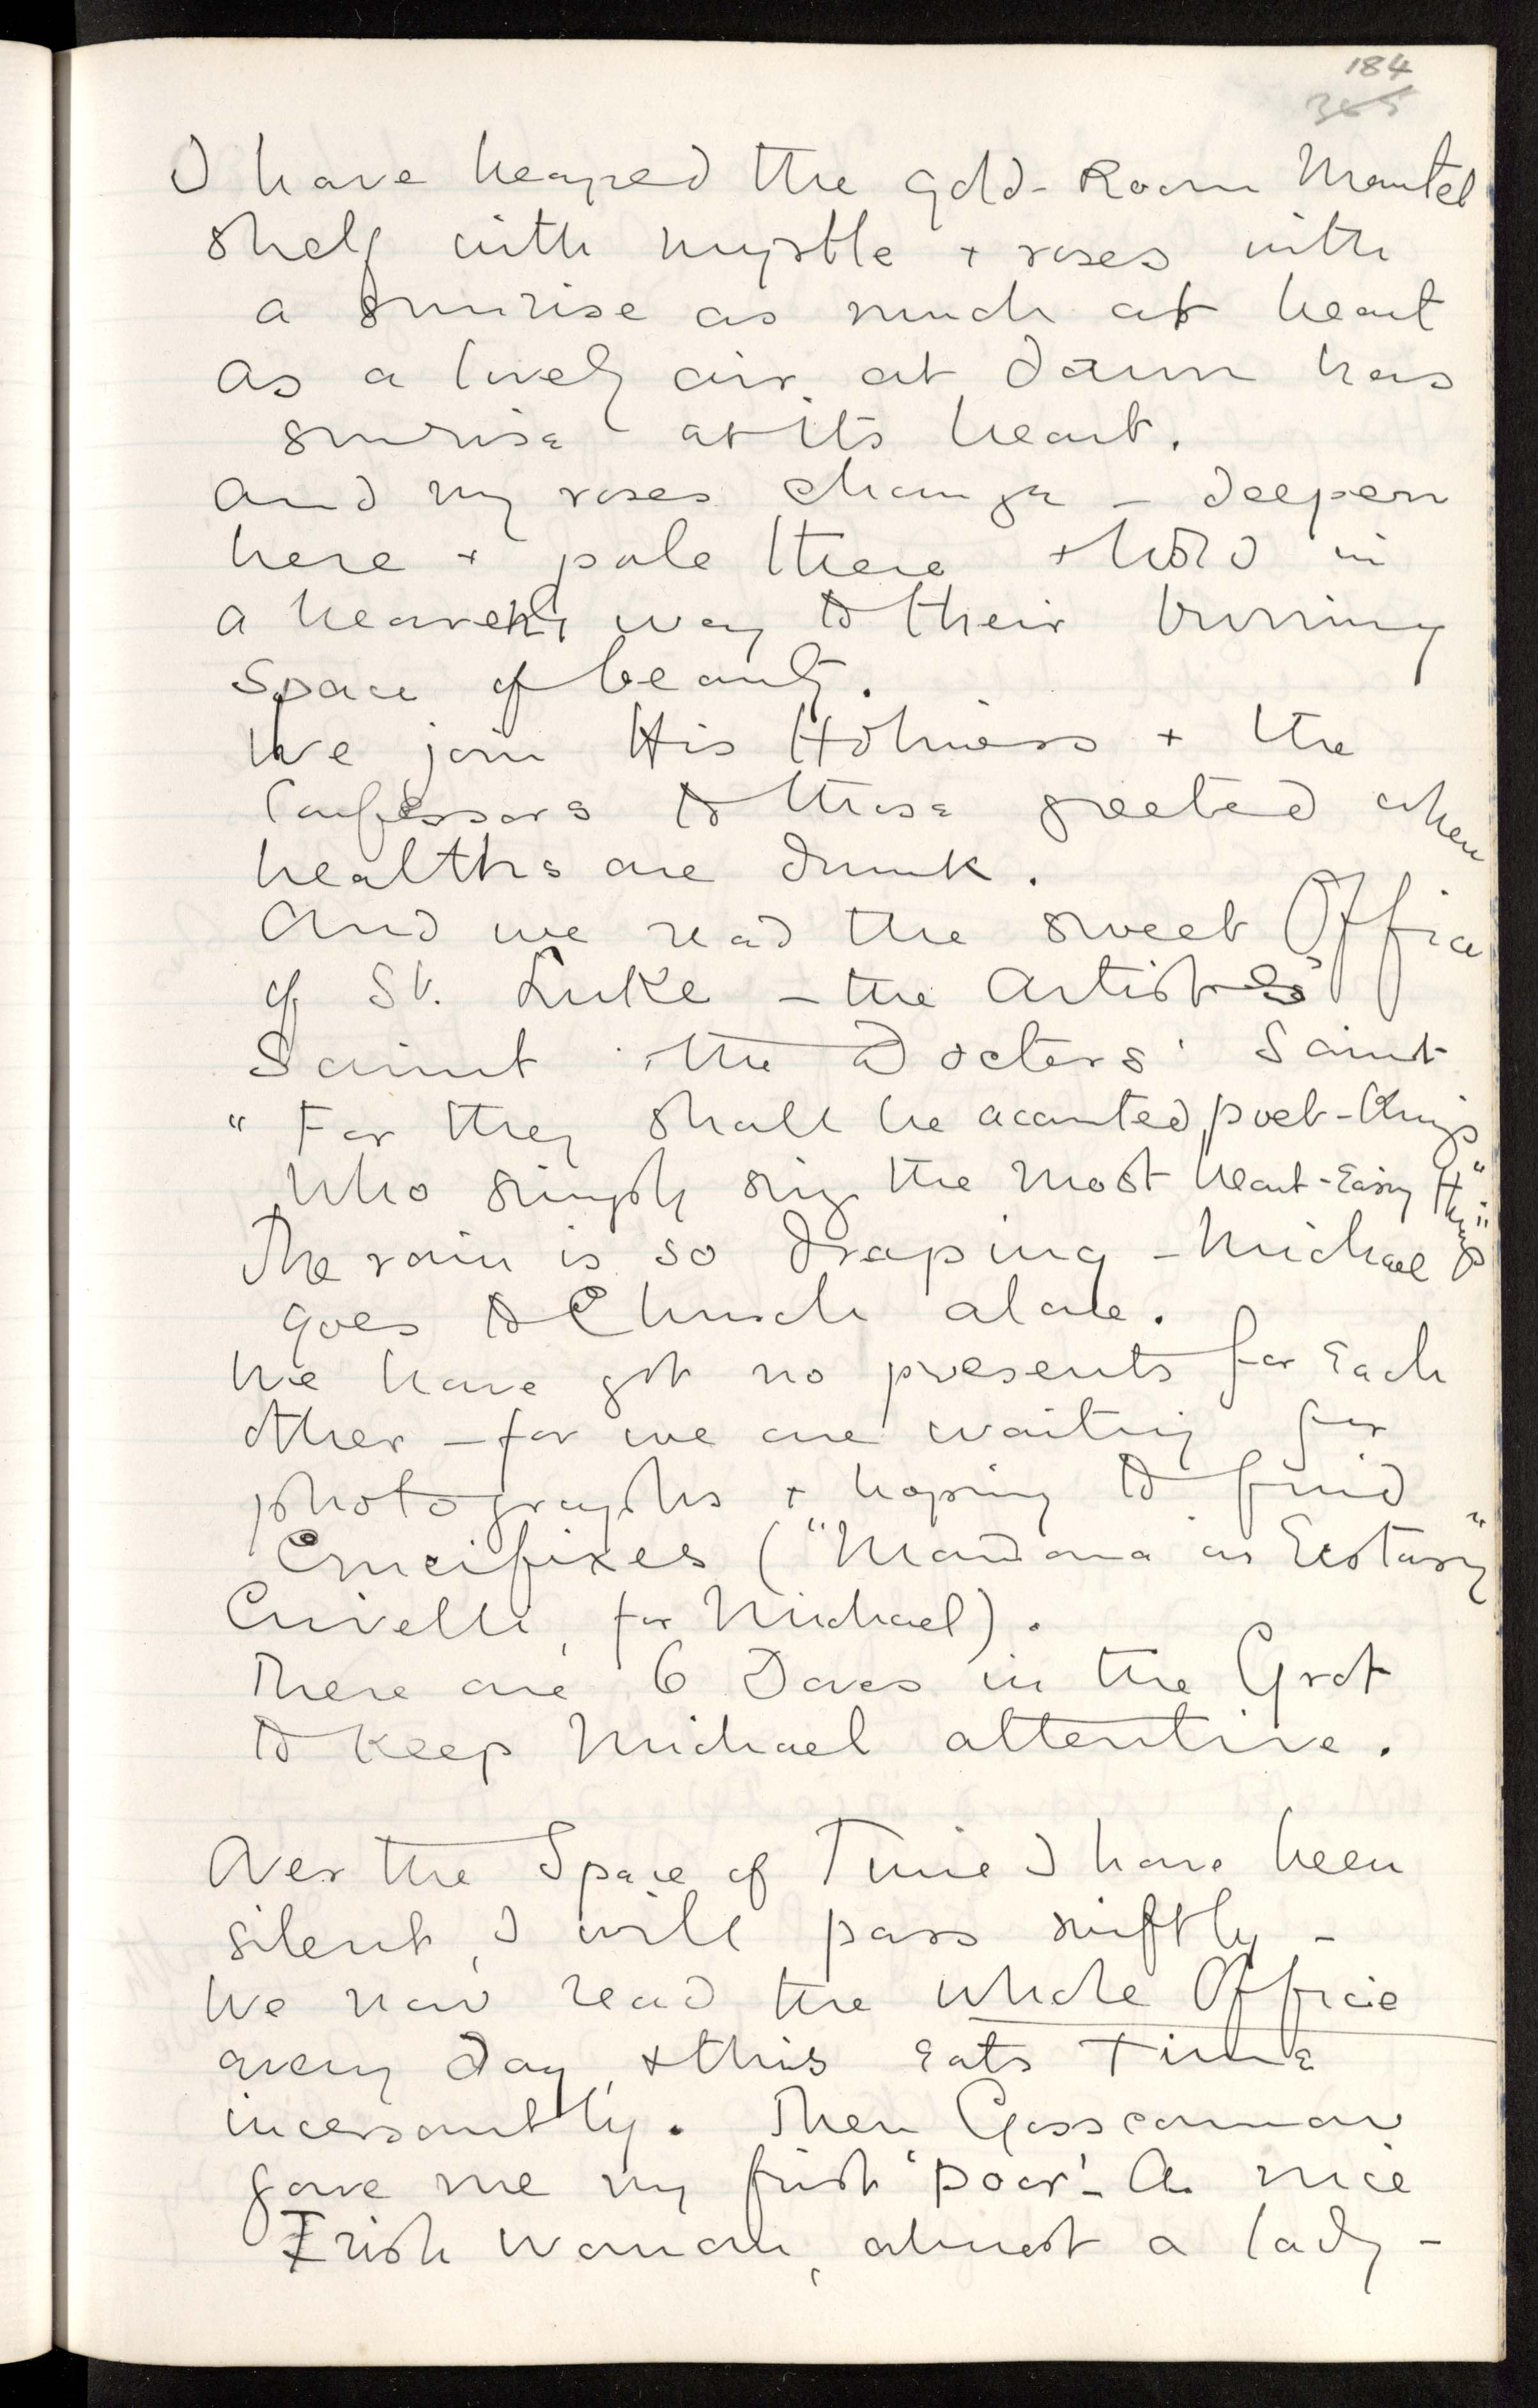 184
365
I have heaped the Gold-Room Mantel
shelf with myrtle + roses with
a sunrise as much at heart
as a lovely air at dawn has
sunrise at its heart.
And my roses change - deepen
here + pale there + hold in
a heavenly way to their burning
space of beauty.
We join His Holiness + the
Confessors to those greeted when
healths are drunk.
And we read the sweet Office
of St. Luke - the Artists'
Saint the Doctors' Saint
"For they shall be accounted poet-kings
Who simply sing the most heart-easing things".
The rain is so draping - Michael
goes to Church alone.
We have got no presents for each
other - for we are waiting for
photographs + hoping to find
Crucifixes ("Madonna in Ecstasy"
Crivelli, for Michael).
There are 6 Doves in the Grot
to keep Michael attentive.
Over the Space of Time I have been
silent, I will pass swiftly -
We now read the whole Office
every day, + this eats Time
incessantly. Then Gosscannon
gave me my first 'poor'- A nice
Irish woman, almost a lady -